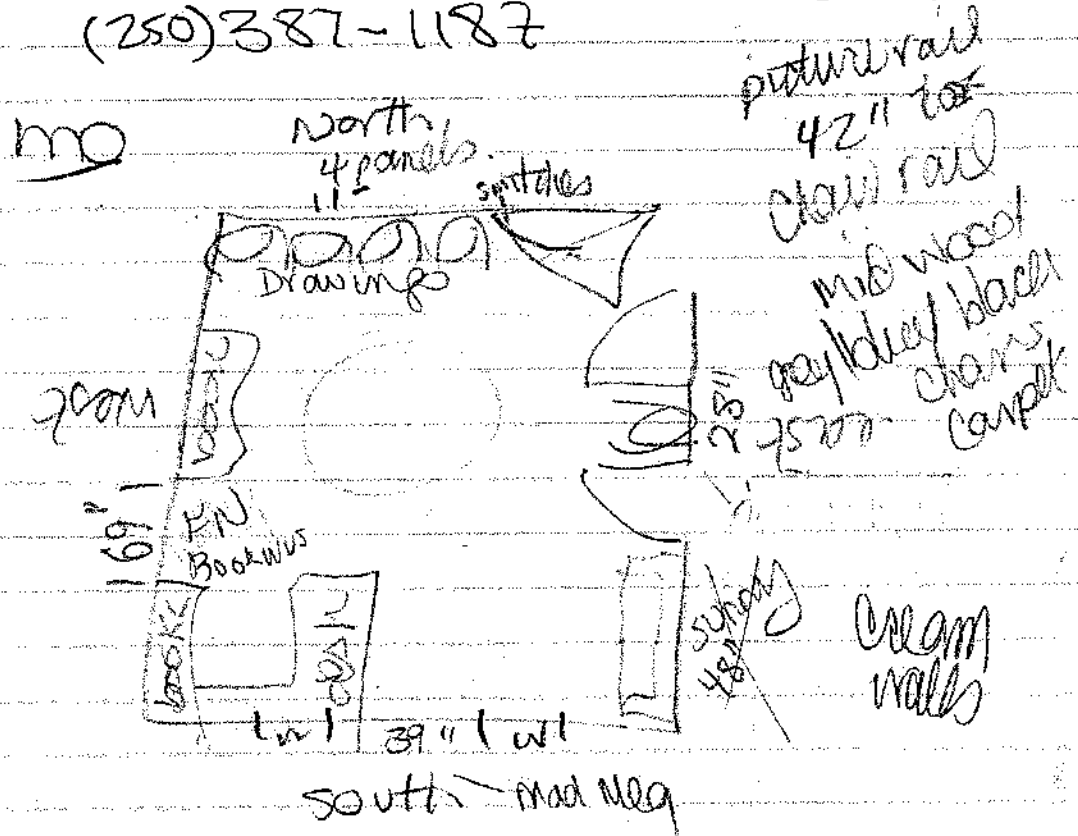 (250) 387-1187
mo
North
4 panels
11"
switches
Drawings
picture rail
42" to
chair rail
mid wood
grey/blue/black
chairs
carpet
West
books
25"
69"
FN
Bookends
book
desk
48"
cream
walls
w
39"
w
South -